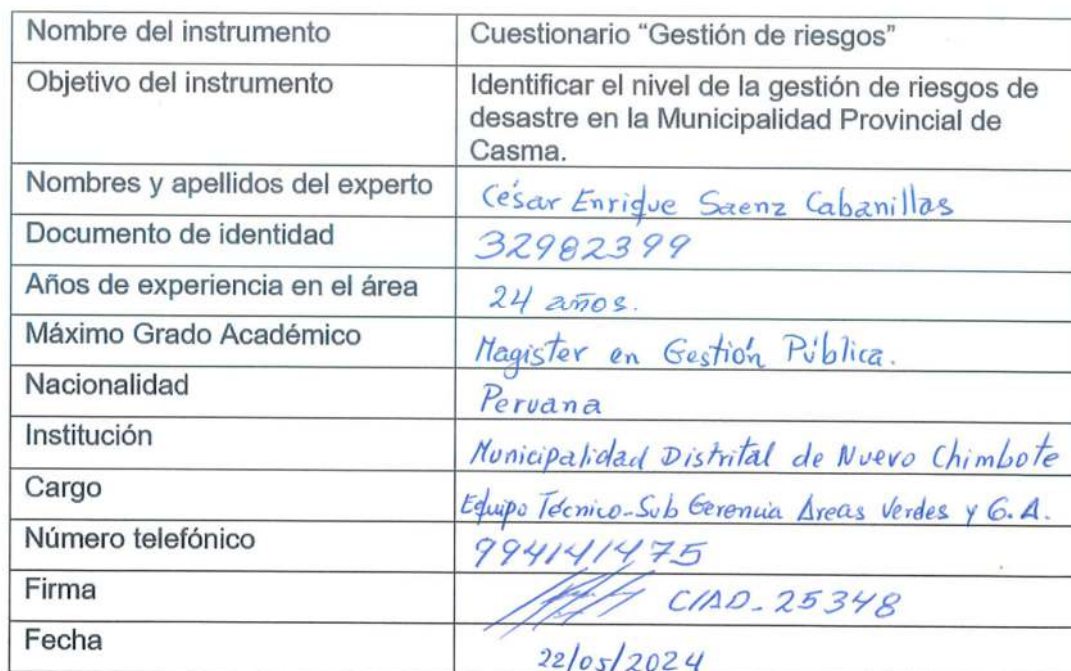 Nombre del instrumento Cuestionario “Gestión de riesgos”
Objetivo del instrumento Identificar el nivel de la gestión de riesgos de
desastre en la Municipalidad Provincial de
Casma.
Nombres y apellidos del experto César Enrique Saenz Cabanillas
Documento de identidad 32982399
Años de experiencia en el área 24 años.
Máximo Grado Académico Magister en Gestión Pública.
Nacionalidad Peruana
Institución Municipalidad Distrital de Nuevo Chimbote
Cargo Equipo Técnico-Sub Gerencia Areas Verdes y G.A.
Número telefónico 994141475
Firma CIAD-25348
Fecha 22/05/2024